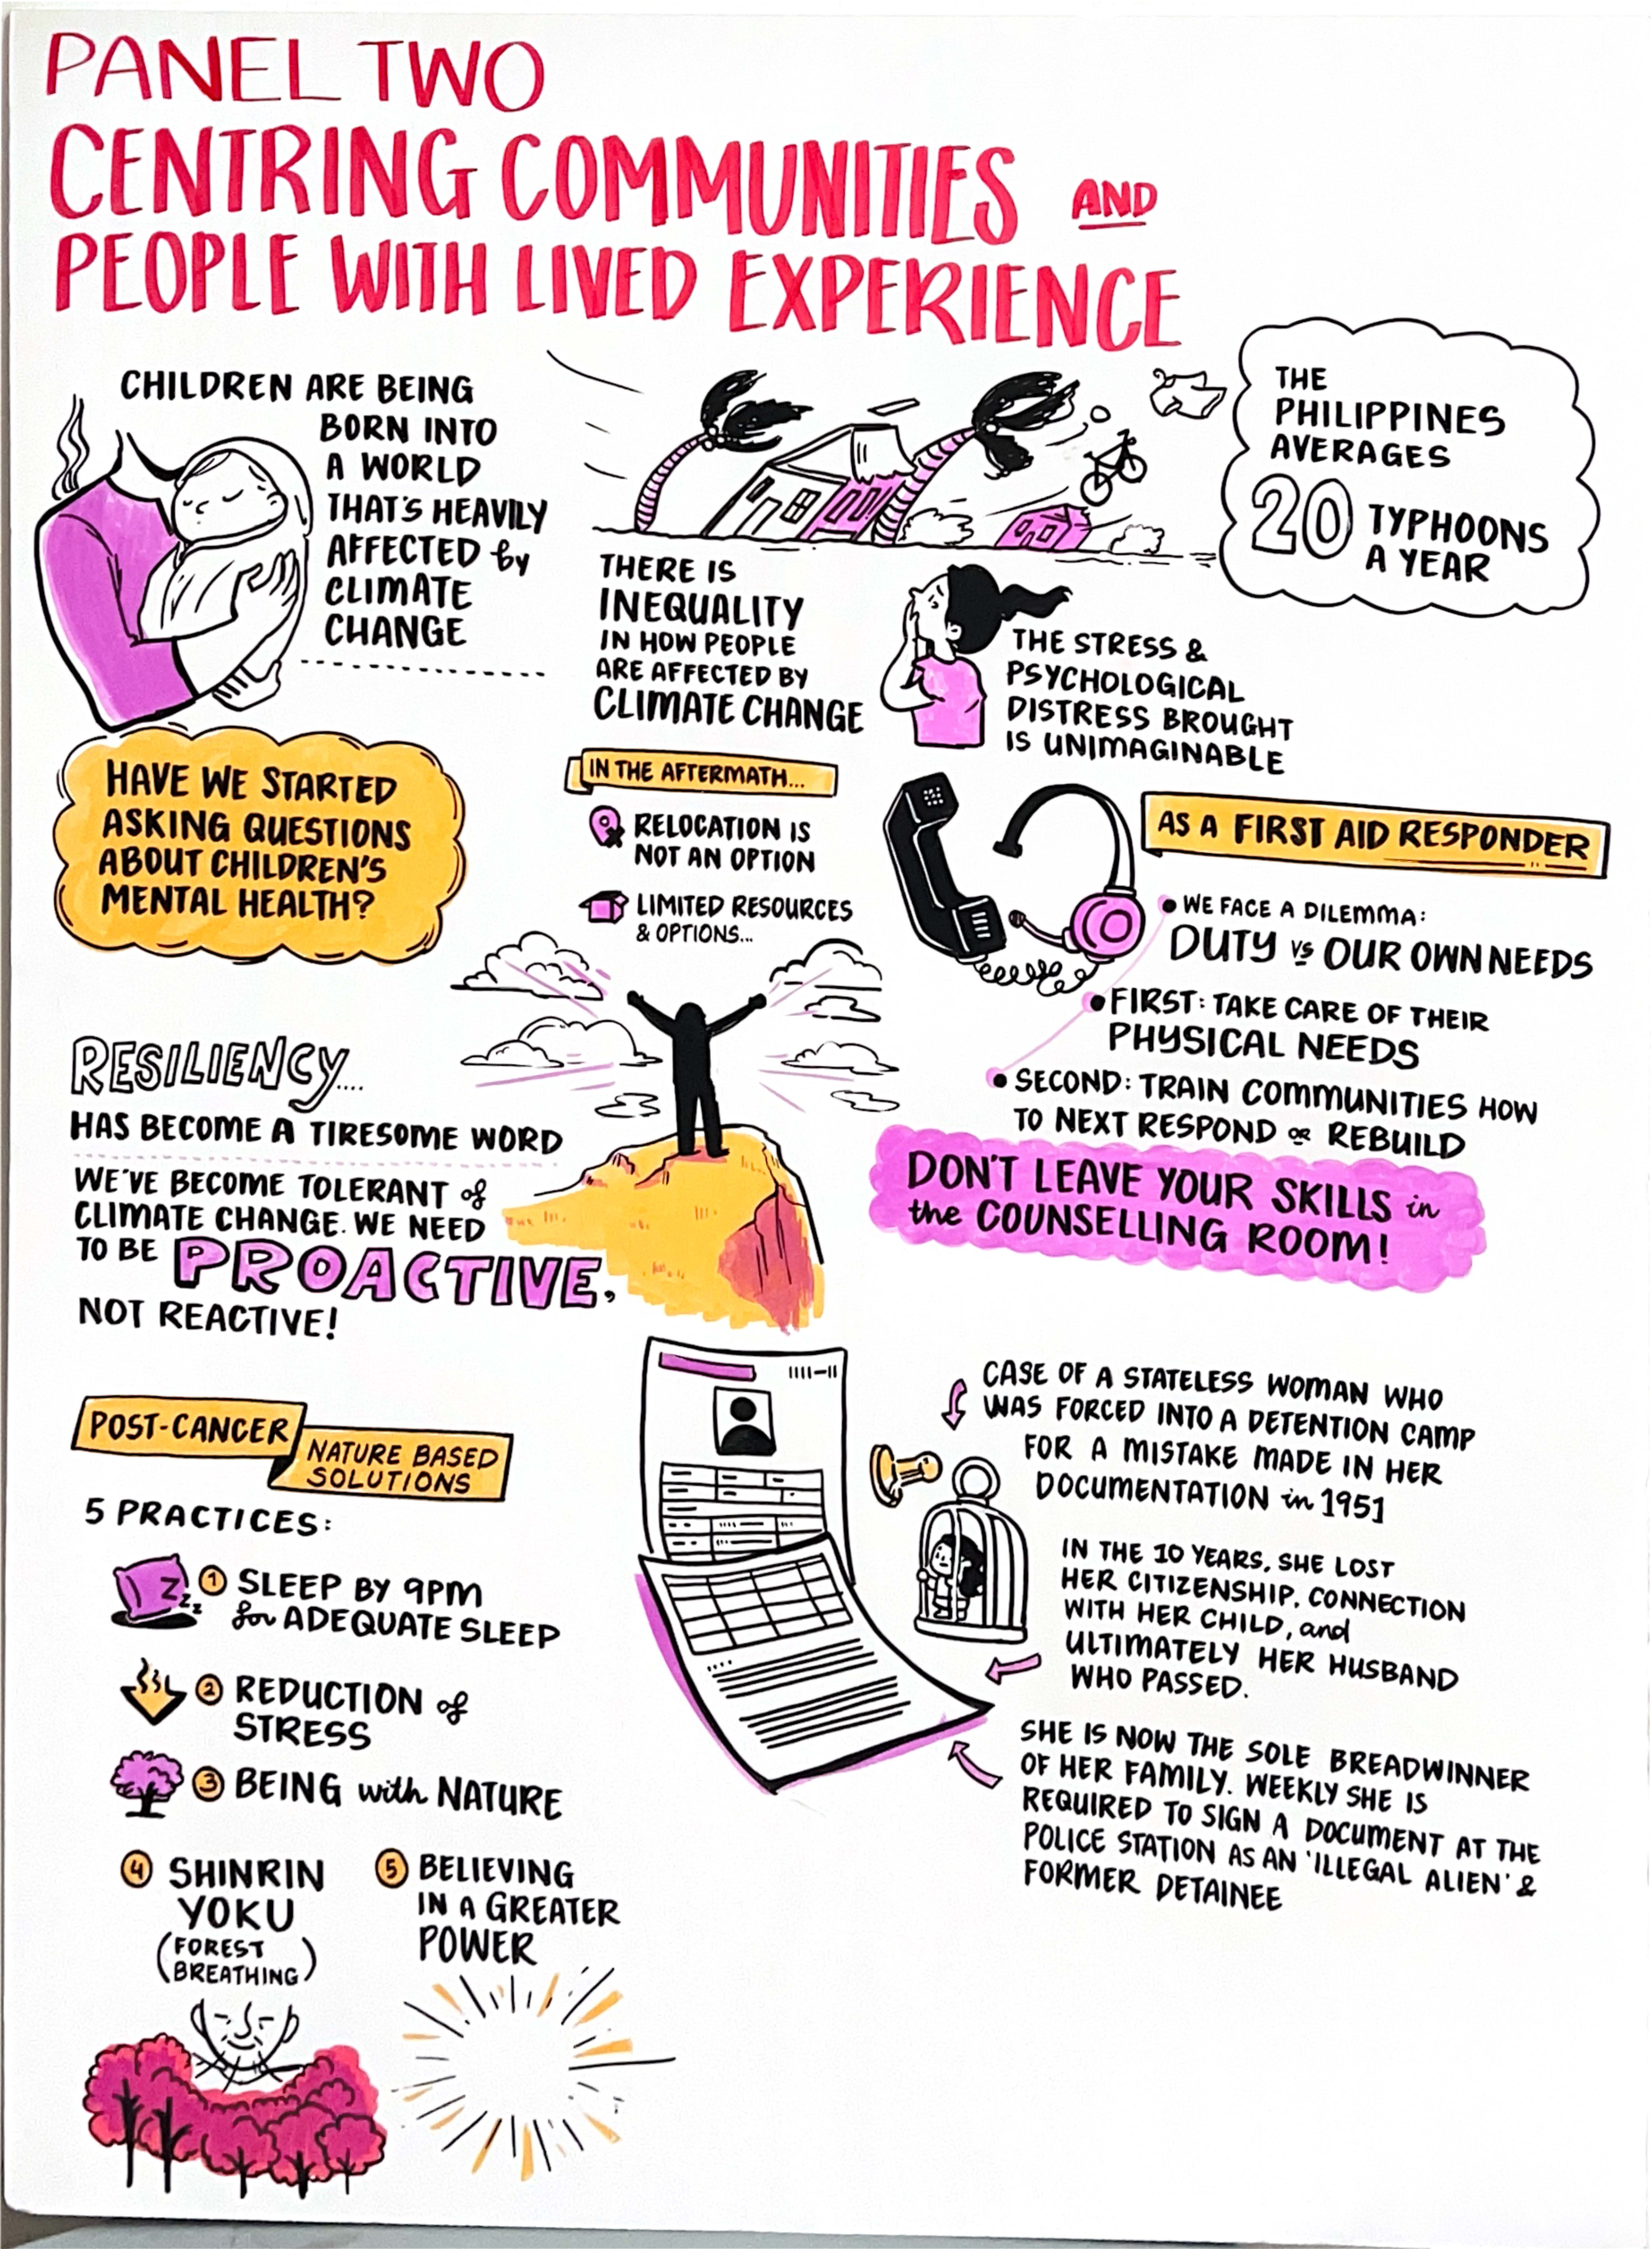 PANEL TWO
CENTRING COMMUNITIES AND
PEOPLE WITH LIVED EXPERIENCE
CHILDREN ARE BEING
BORN INTO
A WORLD
THAT'S HEAVILY
AFFECTED by
CLIMATE
CHANGE
HAVE WE STARTED
ASKING QUESTIONS
ABOUT CHILDREN'S
MENTAL HEALTH?
THE
PHILIPPINES
AVERAGES
20 TYPHOONS
A YEAR
THERE IS
INEQUALITY
IN HOW PEOPLE
ARE AFFECTED BY
CLIMATE CHANGE
THE STRESS &
PSYCHOLOGICAL
DISTRESS BROUGHT
IS UNIMAGINABLE
IN THE AFTERMATH...
RELOCATION IS
NOT AN OPTION
LIMITED RESOURCES
& OPTIONS...
AS A FIRST AID RESPONDER
WE FACE A DILEMMA:
DUTY vs OUR OWN NEEDS
FIRST: TAKE CARE OF THEIR
PHYSICAL NEEDS
SECOND: TRAIN COMMUNITIES HOW
TO NEXT RESPOND or REBUILD
DON'T LEAVE YOUR SKILLS in
the COUNSELLING ROOM!
RESILIENCY....
HAS BECOME A TIRESOME WORD
WE'VE BECOME TOLERANT of
CLIMATE CHANGE. WE NEED
TO BE PROACTIVE,
NOT REACTIVE!
POST-CANCER
NATURE BASED
SOLUTIONS
5 PRACTICES:
Z z z
1 SLEEP BY 9PM
for ADEQUATE SLEEP
2 REDUCTION of
STRESS
3 BEING with NATURE
4 SHINRIN
YOKU
(FOREST
BREATHING)
5 BELIEVING
IN A GREATER
POWER
CASE OF A STATELESS WOMAN WHO
WAS FORCED INTO A DETENTION CAMP
FOR A MISTAKE MADE IN HER
DOCUMENTATION in 1951
IN THE 10 YEARS, SHE LOST
HER CITIZENSHIP, CONNECTION
WITH HER CHILD, and
ULTIMATELY HER HUSBAND
WHO PASSED.
SHE IS NOW THE SOLE BREADWINNER
OF HER FAMILY. WEEKLY SHE IS
REQUIRED TO SIGN A DOCUMENT AT THE
POLICE STATION AS AN 'ILLEGAL ALIEN' &
FORMER DETAINEE